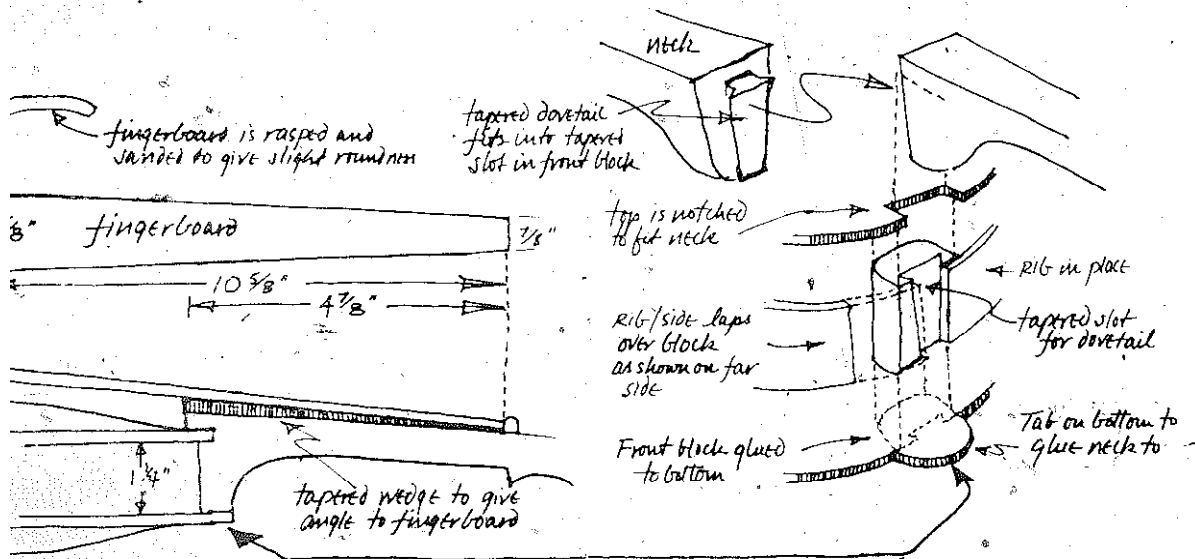 fingerboard is rasped and
sanded to give slight roundness
fingerboard
7/8"
10 5/8"
4 7/8"
1 1/4"
tapered wedge to give
angle to fingerboard
neck
tapered dovetail
fits into tapered
slot in front block
top is notched
to fit neck
Rib in place
Rib/side laps
over block
as shown on far
side
tapered slot
for dovetail
Front block glued
to bottom
Tab on bottom to
glue neck to